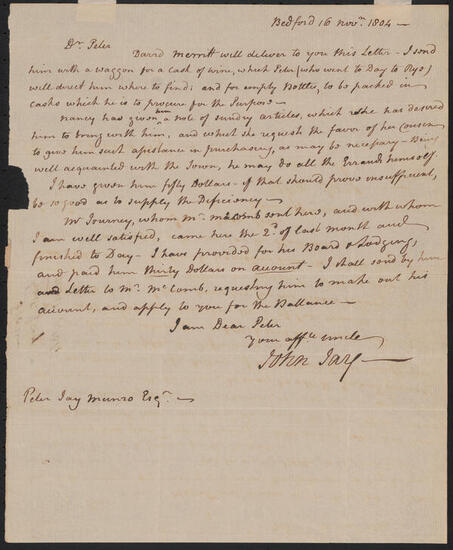 Bedford 16 Novr. 1804 —
Dr. Peter
David Merritt will deliver to you this Letter - I send
him with a waggon for a Cask of wine, which Peter (who went to Day to Rye)
will direct him where to find; and for empty Bottles, to be packed in
casks which he is to procure for the Purpose —
Nancy has given him a note of sundry articles, which she has desired
him to bring with him, and which she requests the favor of her Cousin
to give him such assistance in purchasing, as may be necessary - Being
well acquainted with the Town, he may do all the Errands himself.
I have given him fifty Dollars - if that should prove insufficient,
be so good as to supply the Deficiency —
Mr Journey, whom Mr. McComb sent here, and with whom
I am well satisfied, came here the 2d. of last month and
finished to Day - I have provided for his Board & Lodging,
and paid him thirty Dollars on account - I shall send by him
Letter to Mr. McComb, requesting him to make out his
account, and apply to you for the Ballance —
I am Dear Peter
Your affte uncle
John Jay —
Peter Jay Munro Esqr. —